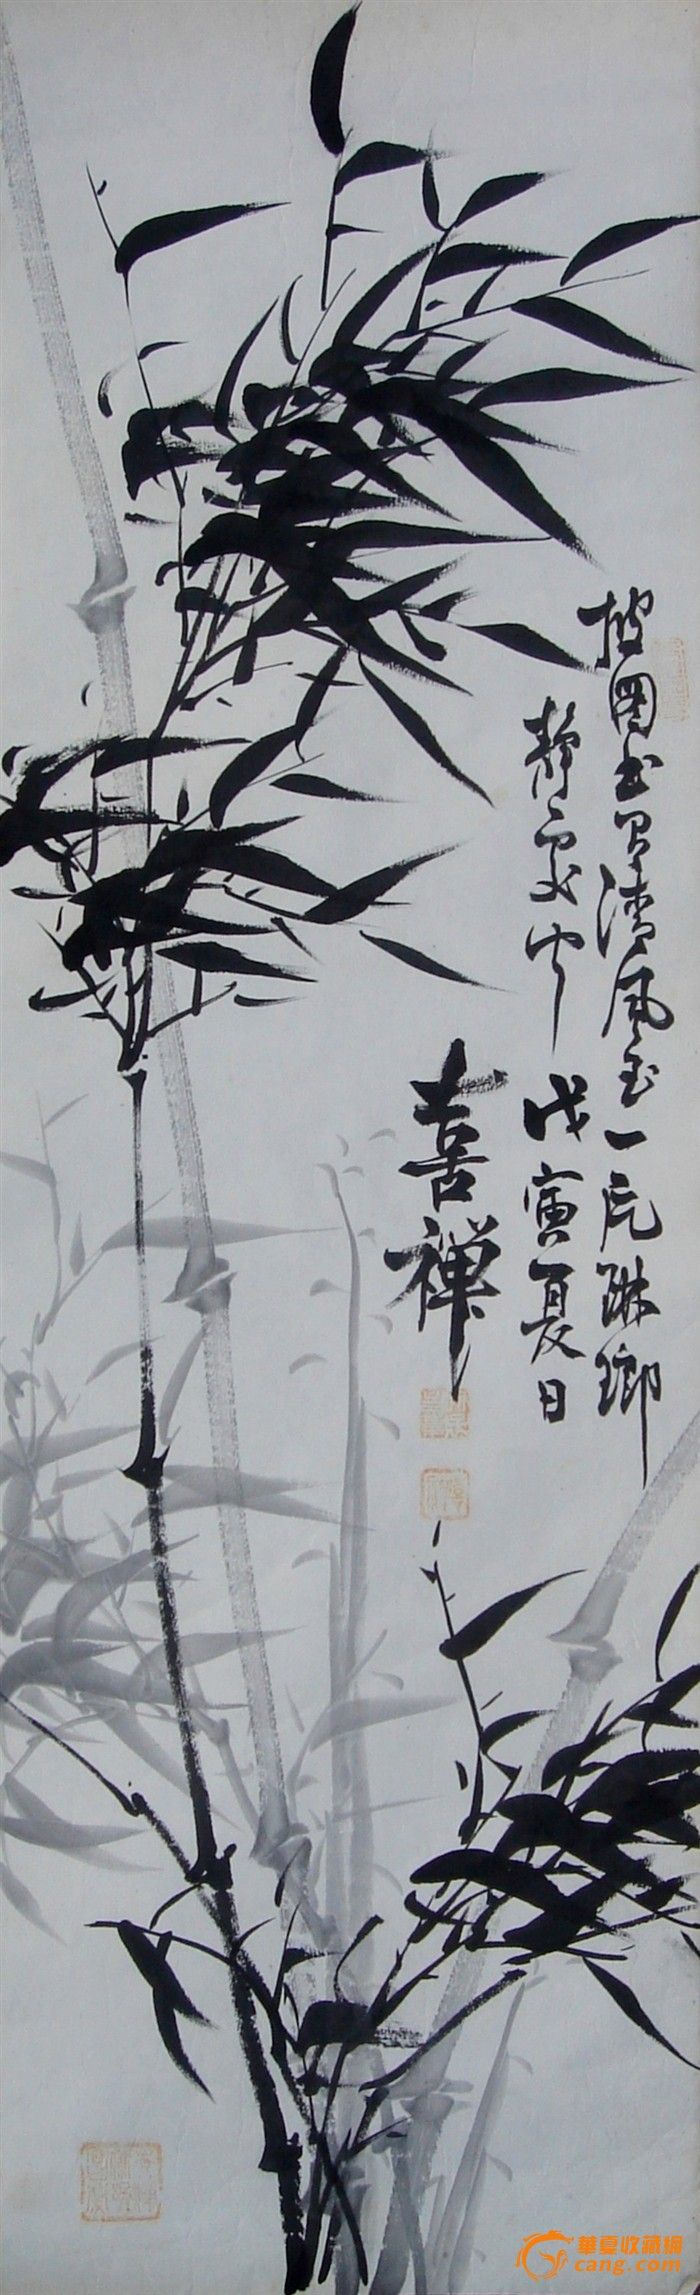 披图出署清风至一片琳瑯
静里听
戊寅夏日
喜禅
華夏收藏網
cang.com